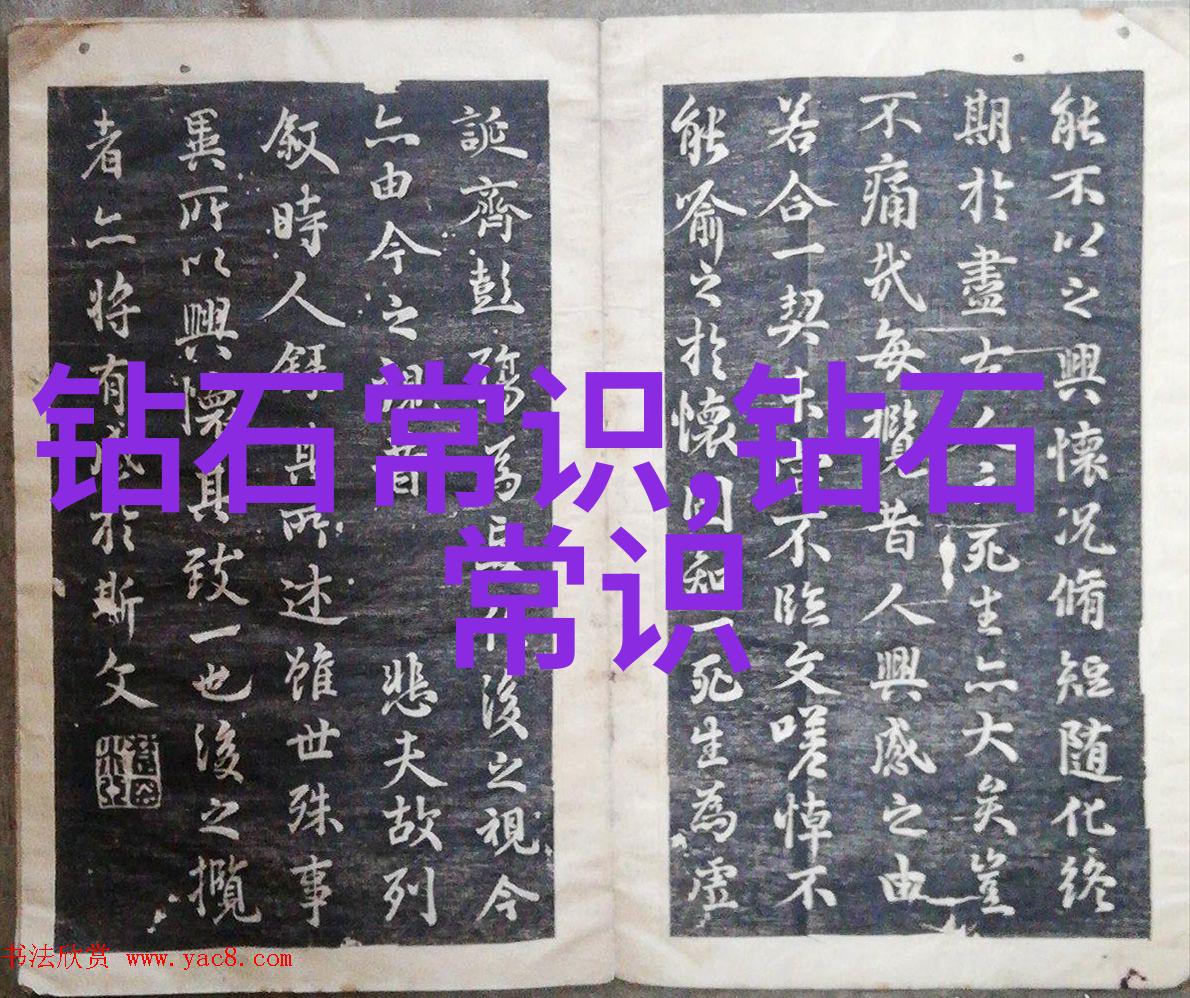 钻石常识,钻石
常识
能不以之興懷況脩短隨化終
期於盡古人云死生亦大矣豈
不痛哉每攬昔人興感之由
若合一契未嘗不臨文嗟悼不
能喻之於懷固知一死生為虛
誕齊彭殤為妄作後之視今
亦由今之視昔悲夫故列
敘時人錄其所述雖世殊事
異所以興懷其致一也後之攬
者亦將有感於斯文
书法欣赏 www.yac8.com